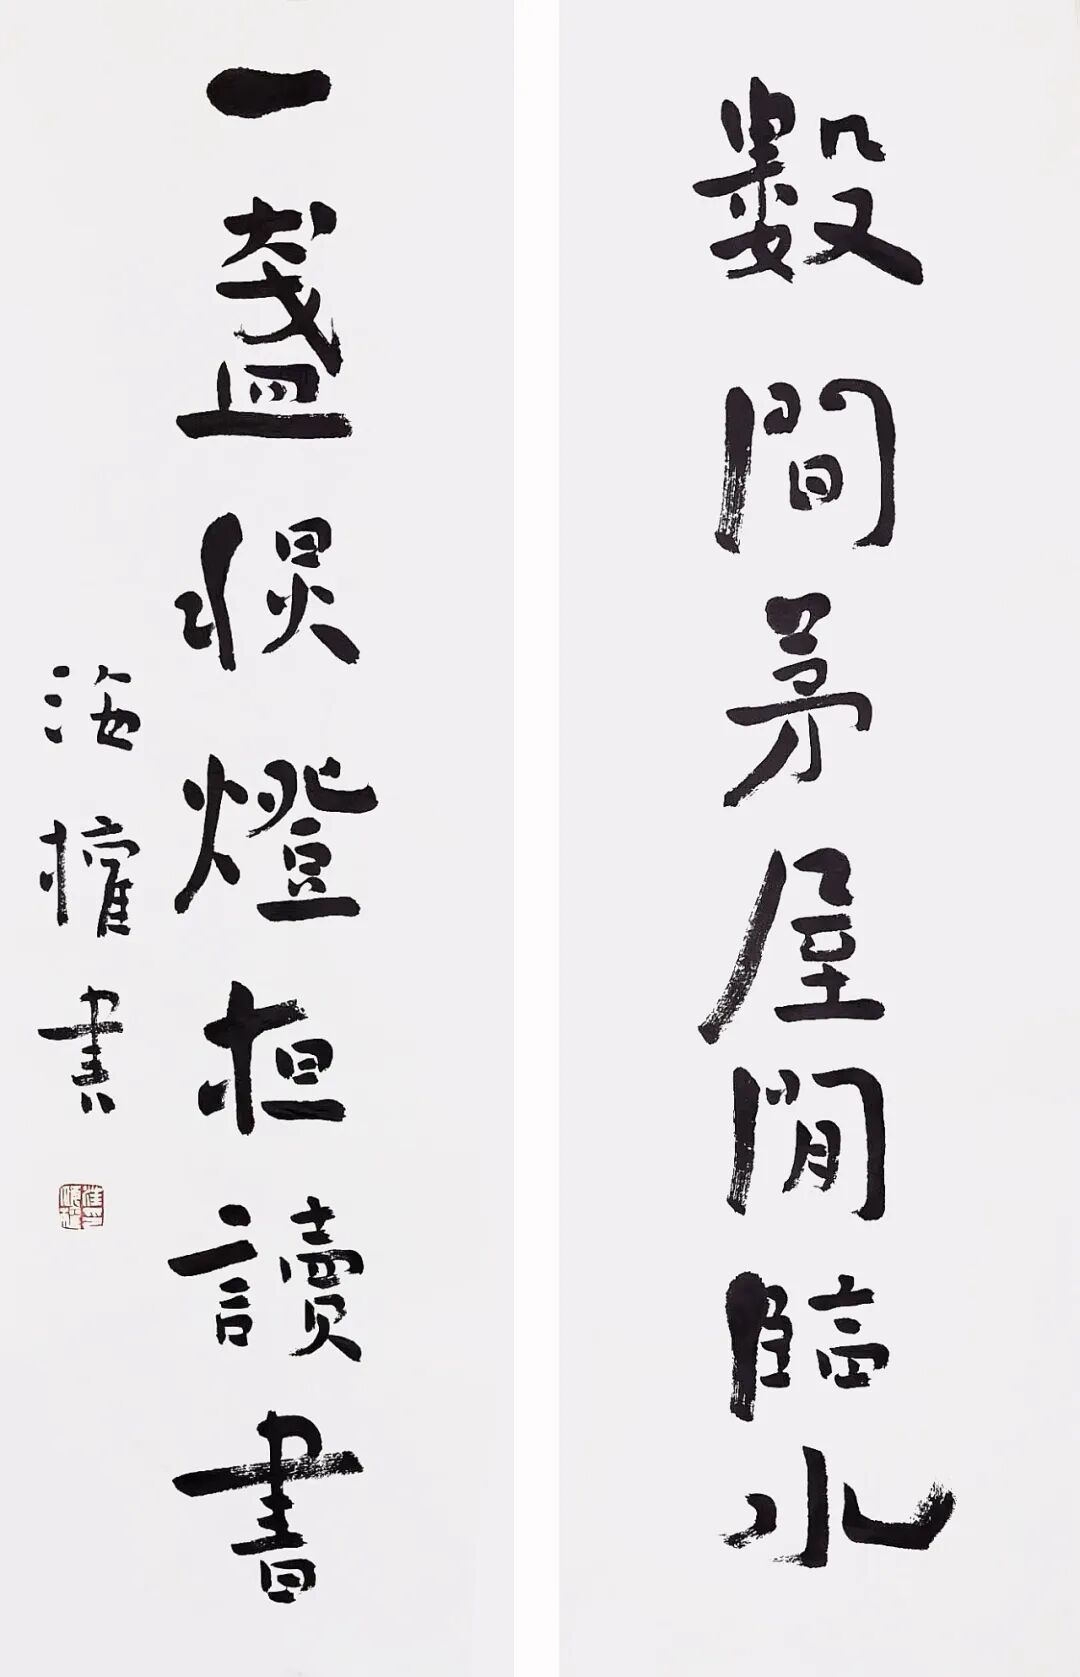 數間茅屋閒臨水
一盞燈讀書
海權書